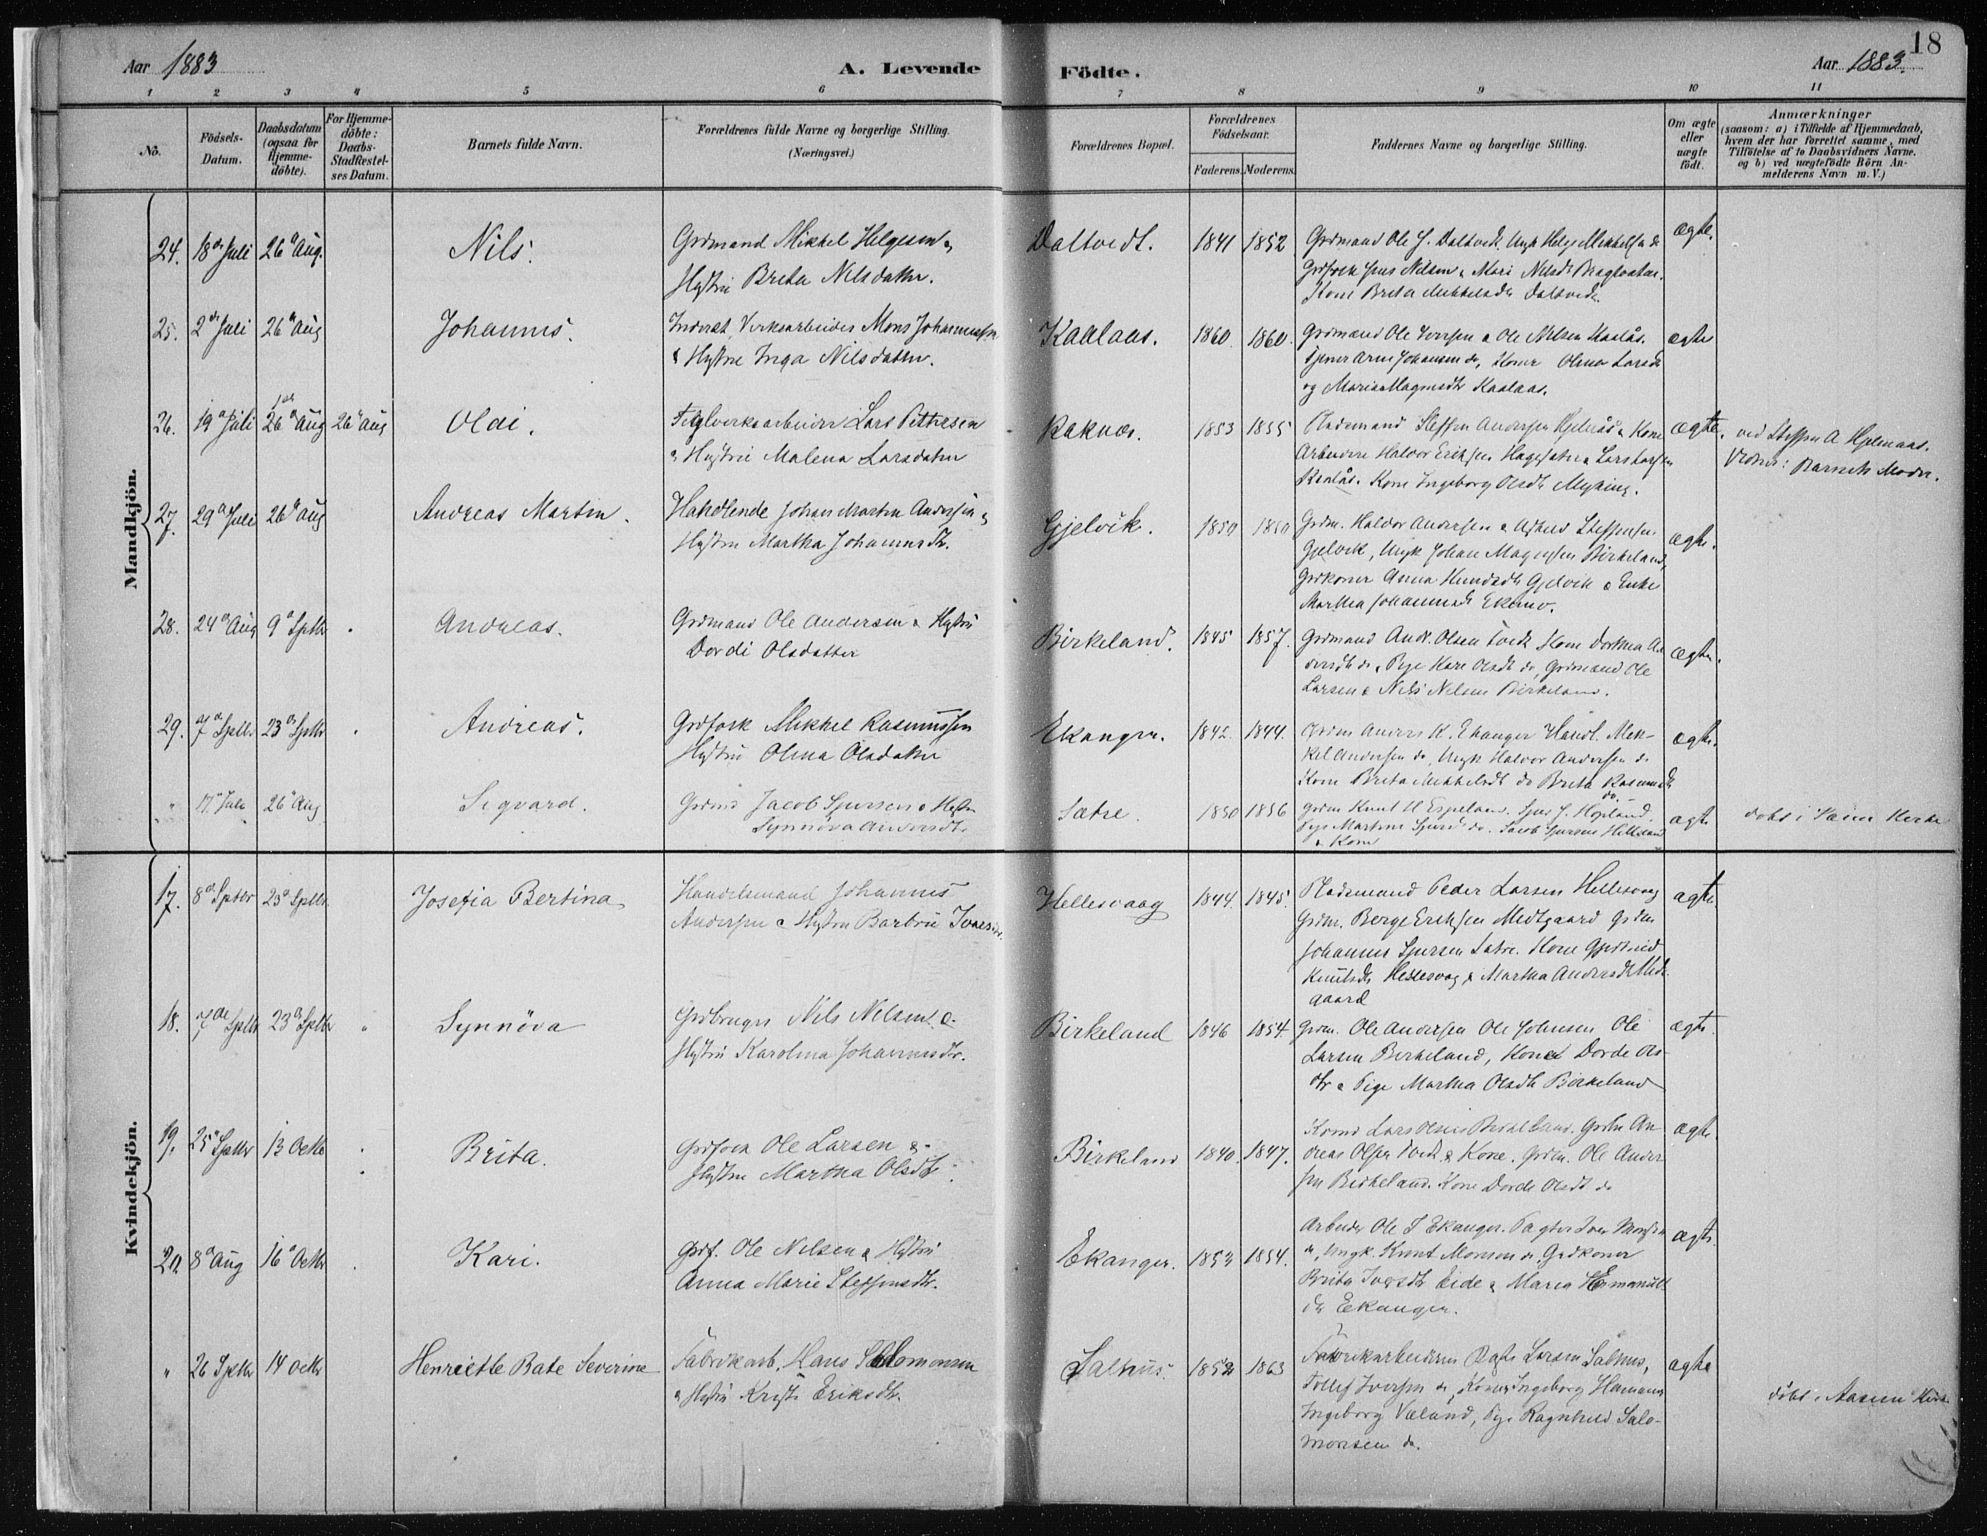 18
Aar 1883
A. Levende
Födte.
Aar 1883.
1 2 3 4 5 6 7 8 9 10 11
No.
Födsels-
Datum.
Daabsdatum
(ogsaa for
Hjemme-
döbte).
For Hjemme-
döbte:
Daabs-
Stadfæstel-
ses Datum.
Barnets fulde Navn.
Forældrenes fulde Navne og borgerlige Stilling.
(Næringsvei.)
Forældrenes Bopæl.
Forældrenes
Födselsaar.
Faderens. Moderens.
Faddernes Navne og borgerlige Stilling.
Om ægte
eller
uægte
födt.
Anmærkninger
(saasom: a) i Tilfælde af Hjemmedaab,
hvem der har forrettet samme, med
Tilföielse af to Daabsvidners Navne.
og b) ved uægtefödte Börn An-
melderens Navn m. V.)
Mandkjön.
24. 18de Juli 26 Aug. Nils.
Grdmand Mikkel Helgesen &
Hustru Brita Nilsdatter.
Daltvedt. 1841 1852
Grdmand Ole Daltvedt, Ungk Helge Mikkelsen do
Kone Brita Mikkelsdtr Daltvedt.
ægte.
25. 2de Juli 26 Aug Johannes.
Inderst Verksarbeider Mons Johannessen
& Hustru Inga Nilsdatter.
Kaalaas. 1860 1860.
Grdmand Ole Iversen & Ole Nilsen Kaalås.
og Maria Magnusdtr Kaalaas.
ægte
26. 19 Juli 26 Aug 26 Aug Oldi.
Teglverksarbeider Lars Pettersen
& Hustru Malena Larsdatter
Raknæs. 1853 1855
Pladsmand Steffen Andersen Hjelmås & Kone
Arbeidere Halvor Eriksen & Lars Larsen
Kaalås. Kone Ingeborg Olsdtr Myking.
ægte.
ved Steffen A Hjelmaas.
Vidner: Barnets Moder.
27. 29 Juli 26 Aug Andreas Martin.
Handlende Johan Martin Andersen &
Hustru Martha Johannesdtr.
Gjelvik. 1850
Grdm. Haldor Andersen & Steffensen
Gjelvik, Ungk Johan Magnussen Birkeland,
Grdkoner Anna Gjelvik & Enke
Martha Johannesdtr
ægte.
28. 24 Aug 9 Septbr Andreas.
Grdmand Ole Andersen & Hustru
Dordi Olsdatter
Birkeland. 1845 1857.
Grdmand Andr. Olsen Tvedt, Kone Dorthea An-
dersdtr do, Pige Kari Olsdtr do, Grdmand Ole
Larsen & Nils Nilsen Birkeland.
ægte.
29. 7 Septbr. 23 Septbr Andreas.
Grdfolk Mikkel Rasmussen
Hustru Olina Olsdatter
Ekanger. 1842 1844.
Grdm Anders K. Ekanger Handl. Mik-
kel Andersen do, Ungk Haldor Andersen do
Kone Brita Mikkelsdtr do Brita Rasmusdtr
do.
ægte.
" 17 Juli 26 Aug Sigvard.
Grdmd Jacob Sjursen & Hustru
Synnöva Andersdtr.
Sætre. 1850 1856
Grdm Knut H Espeland. Sjur J. Hopland.
& Kone
ægte
döbt i Kirke
Kvindekjön.
17. 8 Septbr 23 Septbr. Josefia Bertina
Handelsmand Johannes
Andersen & Hustru Barbru Iversdtr.
Hellesvaag 1844. 1845.
Pladsmand Peder Larsen Hellesvaag
Grdm. Berge Eriksen Midtgaard Grdm
Johannes Sjursen Sætre. Kone
Knutsdtr Hellesvag & Martha Andersdtr Midt-
gaard
ægte.
18. 7de Septbr 23 Septbr " Synnöva
Grdbruger Nils Nilsen &
Hustru Karolina Johannesdtr.
Birkeland 1846 1854.
Grdm. Ole Andersen Ole Johnsen Ole
Larsen Birkeland, Kone Dorde Ols-
dtr & Pige Martha Olsdtr Birkeland
ægte.
19. 25 Septbr 13 Octbr Brita.
Grdfolk Ole Larsen &
Hustru Martha Olsdtr.
Birkeland 1840. 1847.
Kone Lars Birkeland. Grdm An-
dreas Olsen Tvedt & Kone. Grdm. Ole Ander-
sen Birkeland. Kone Dorde Olsdtr do
ægte.
20. 8 Aug 16 Octbr Kari.
Grdf. Ole Nilsen & Hustru
Anna Marie Steffensdtr.
Ekanger. 1853 1854.
Arbeider Ole T Ekanger. Pagter Iver Monsen
", Ungk. Knut Monsen do, Grdkoner
Brita Iversdtr Eide & Maria Hermanns
dtr Ekanger.
ægte.
" 26 Septbr 14 Octbr Henriette Bate Severine
Fabrikarb. Hans Salomonsen
& Hustru Kristi Eriksdtr.
Salhus. 1852 1863
Fabrikarbeiderne Larsen Salhus,
Tollef Iversen do, Koner Ingeborg
Ingeborg Væland, Pige Ragnhild Salo-
monsen do.
ægte
döbt i Aasene Kirke